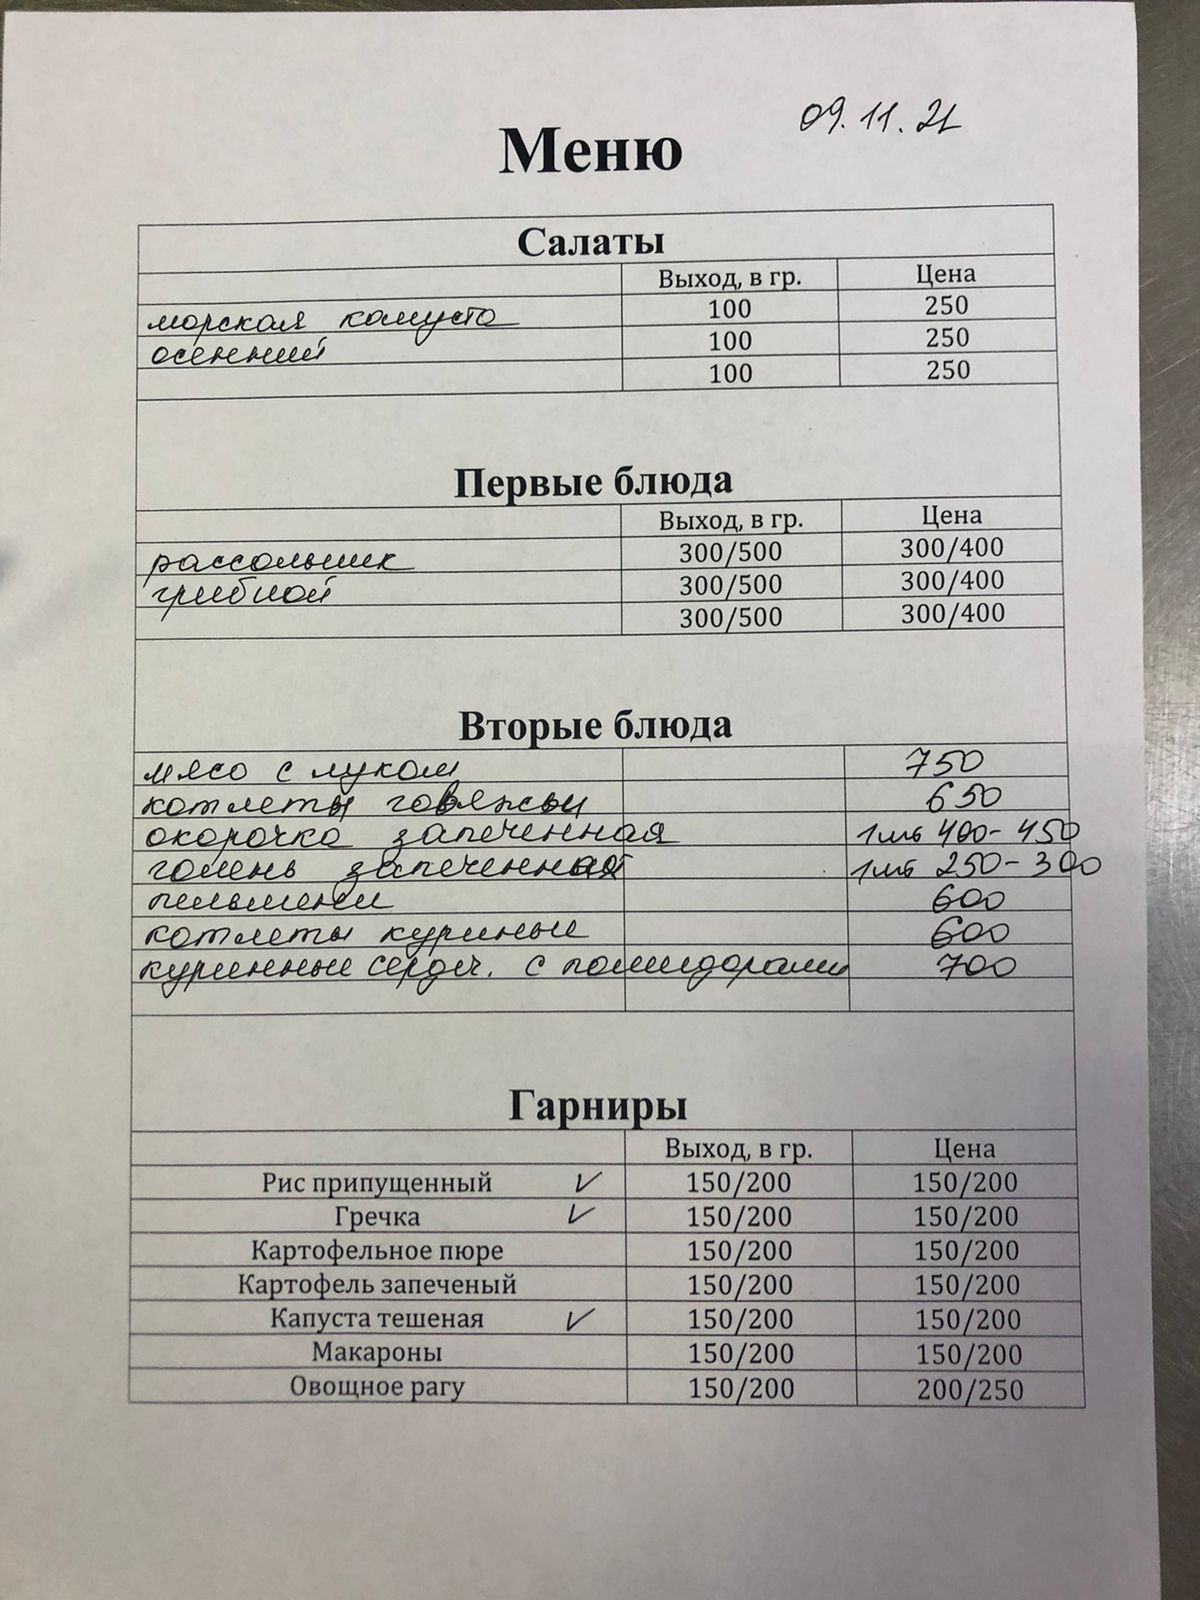 09.11.21
Меню
Салаты
Выход, в гр. Цена
морская капуста 100 250
осенний 100 250
100 250
Первые блюда
Выход, в гр. Цена
рассольник 300/500 300/400
грибной 300/500 300/400
300/500 300/400
Вторые блюда
мясо с луком 750
котлеты говяжьи 650
окорочка запеченная 1шт 400-450
голень запеченная 1шт 250-300
пельмени 600
котлеты куриные 600
куринные сердеч. с помидорами 700
Гарниры
Выход, в гр. Цена
Рис припущенный ✓ 150/200 150/200
Гречка ✓ 150/200 150/200
Картофельное пюре 150/200 150/200
Картофель запеченый 150/200 150/200
Капуста тешеная ✓ 150/200 150/200
Макароны 150/200 150/200
Овощное рагу 150/200 200/250